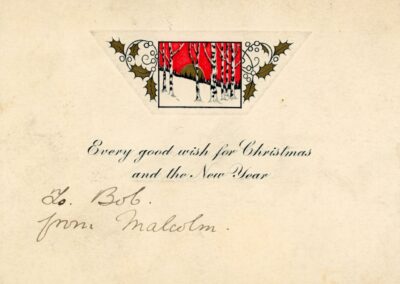 Every good wish for Christmas
and the New Year
To. Bob.
from Malcolm.